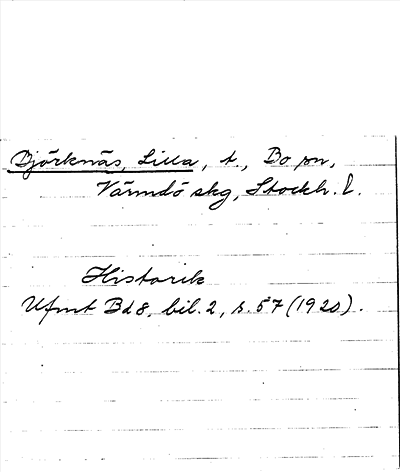 Björknäs, Lilla, t., Bo sn,
Värmdö skg, Stockh. l.
Historik
Ufmt Bd 8, bil. 2, s. 57 (1920).